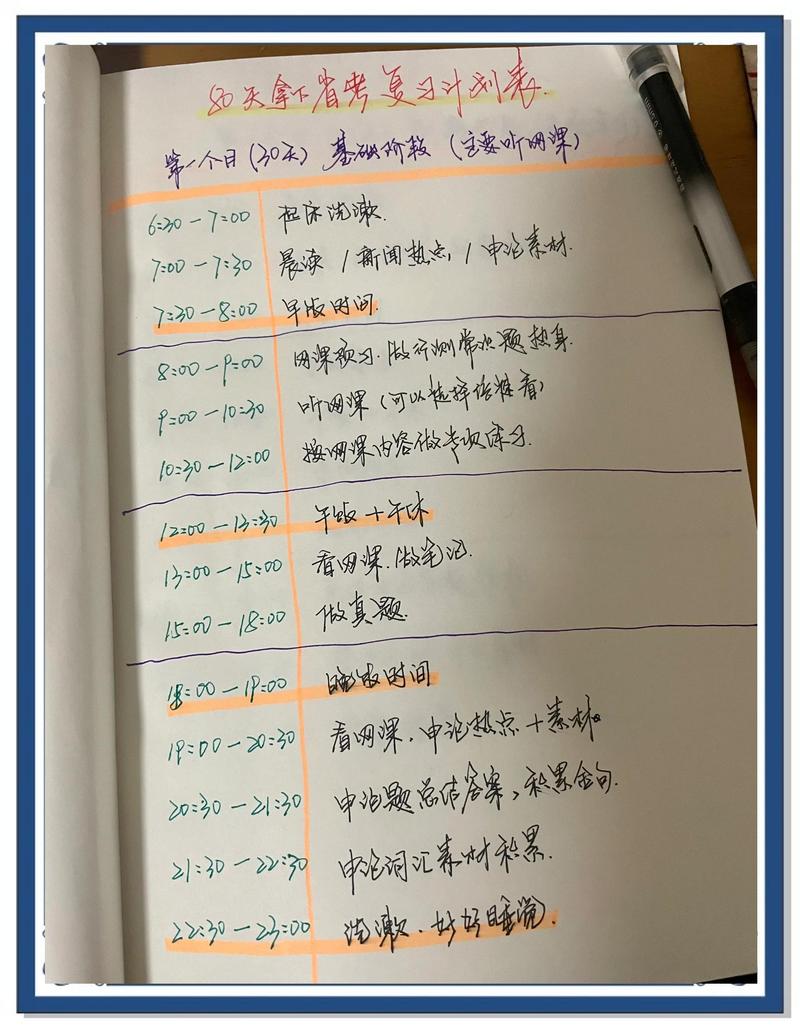 80天拿下省考复习计划表.
第一个月(30天) 基础阶段 (主要听网课)
6:30-7:00 起床洗漱.
7:00-7:30 晨读 / 新闻热点, / 申论素材.
7:30-8:00 早饭时间.
8:00-9:00 网课预习.做行测常识题热身.
9:00-10:30 听网课(可以选择倍速看)
10:30-12:00 按网课内容做专项练习.
12:00-13:30 午饭+午休
13:00-15:00 看网课.做笔记.
15:00-18:00 做真题.
18:00-19:00 晚饭时间
19:00-20:30 看网课.申论热点+素材。
20:30-21:30 申论题总结答案,积累金句.
21:30-22:30 申论词汇素材积累.
22:30-23:00 洗漱.好好睡觉.